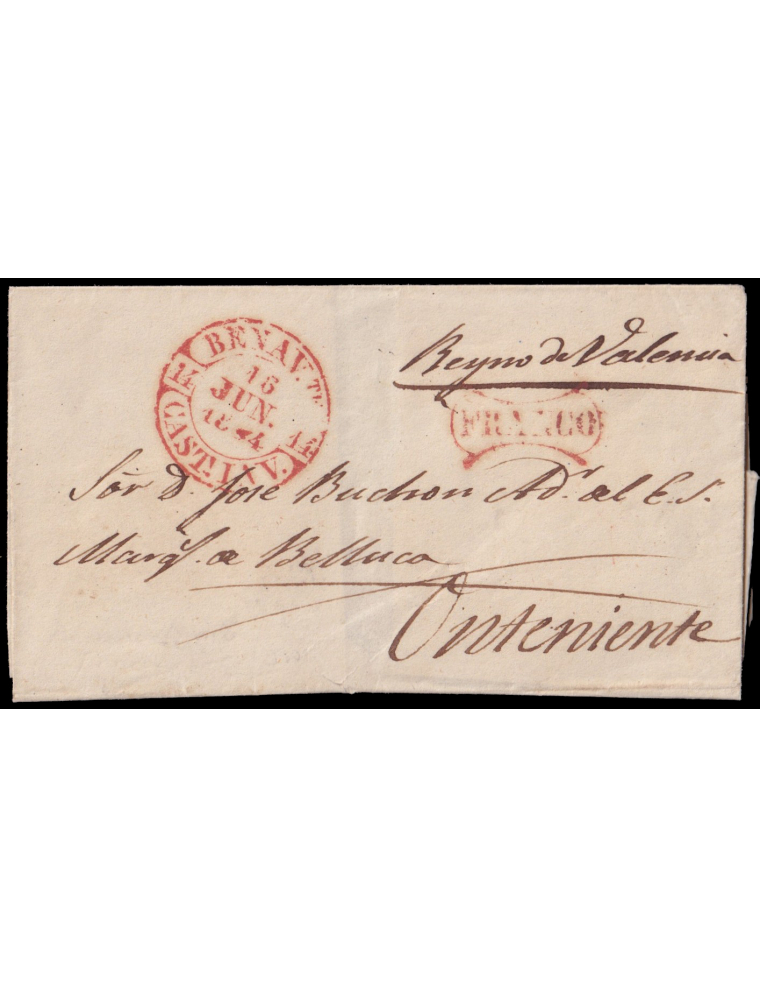 Reyno de Valencia
BENAV.TE
14
16
JUN.
1844
14
CAST. LA V.
FRANCO
Sor. D. Jose Buchon Ad.r del E. S.
Marq.s de Belluca
Onteniente